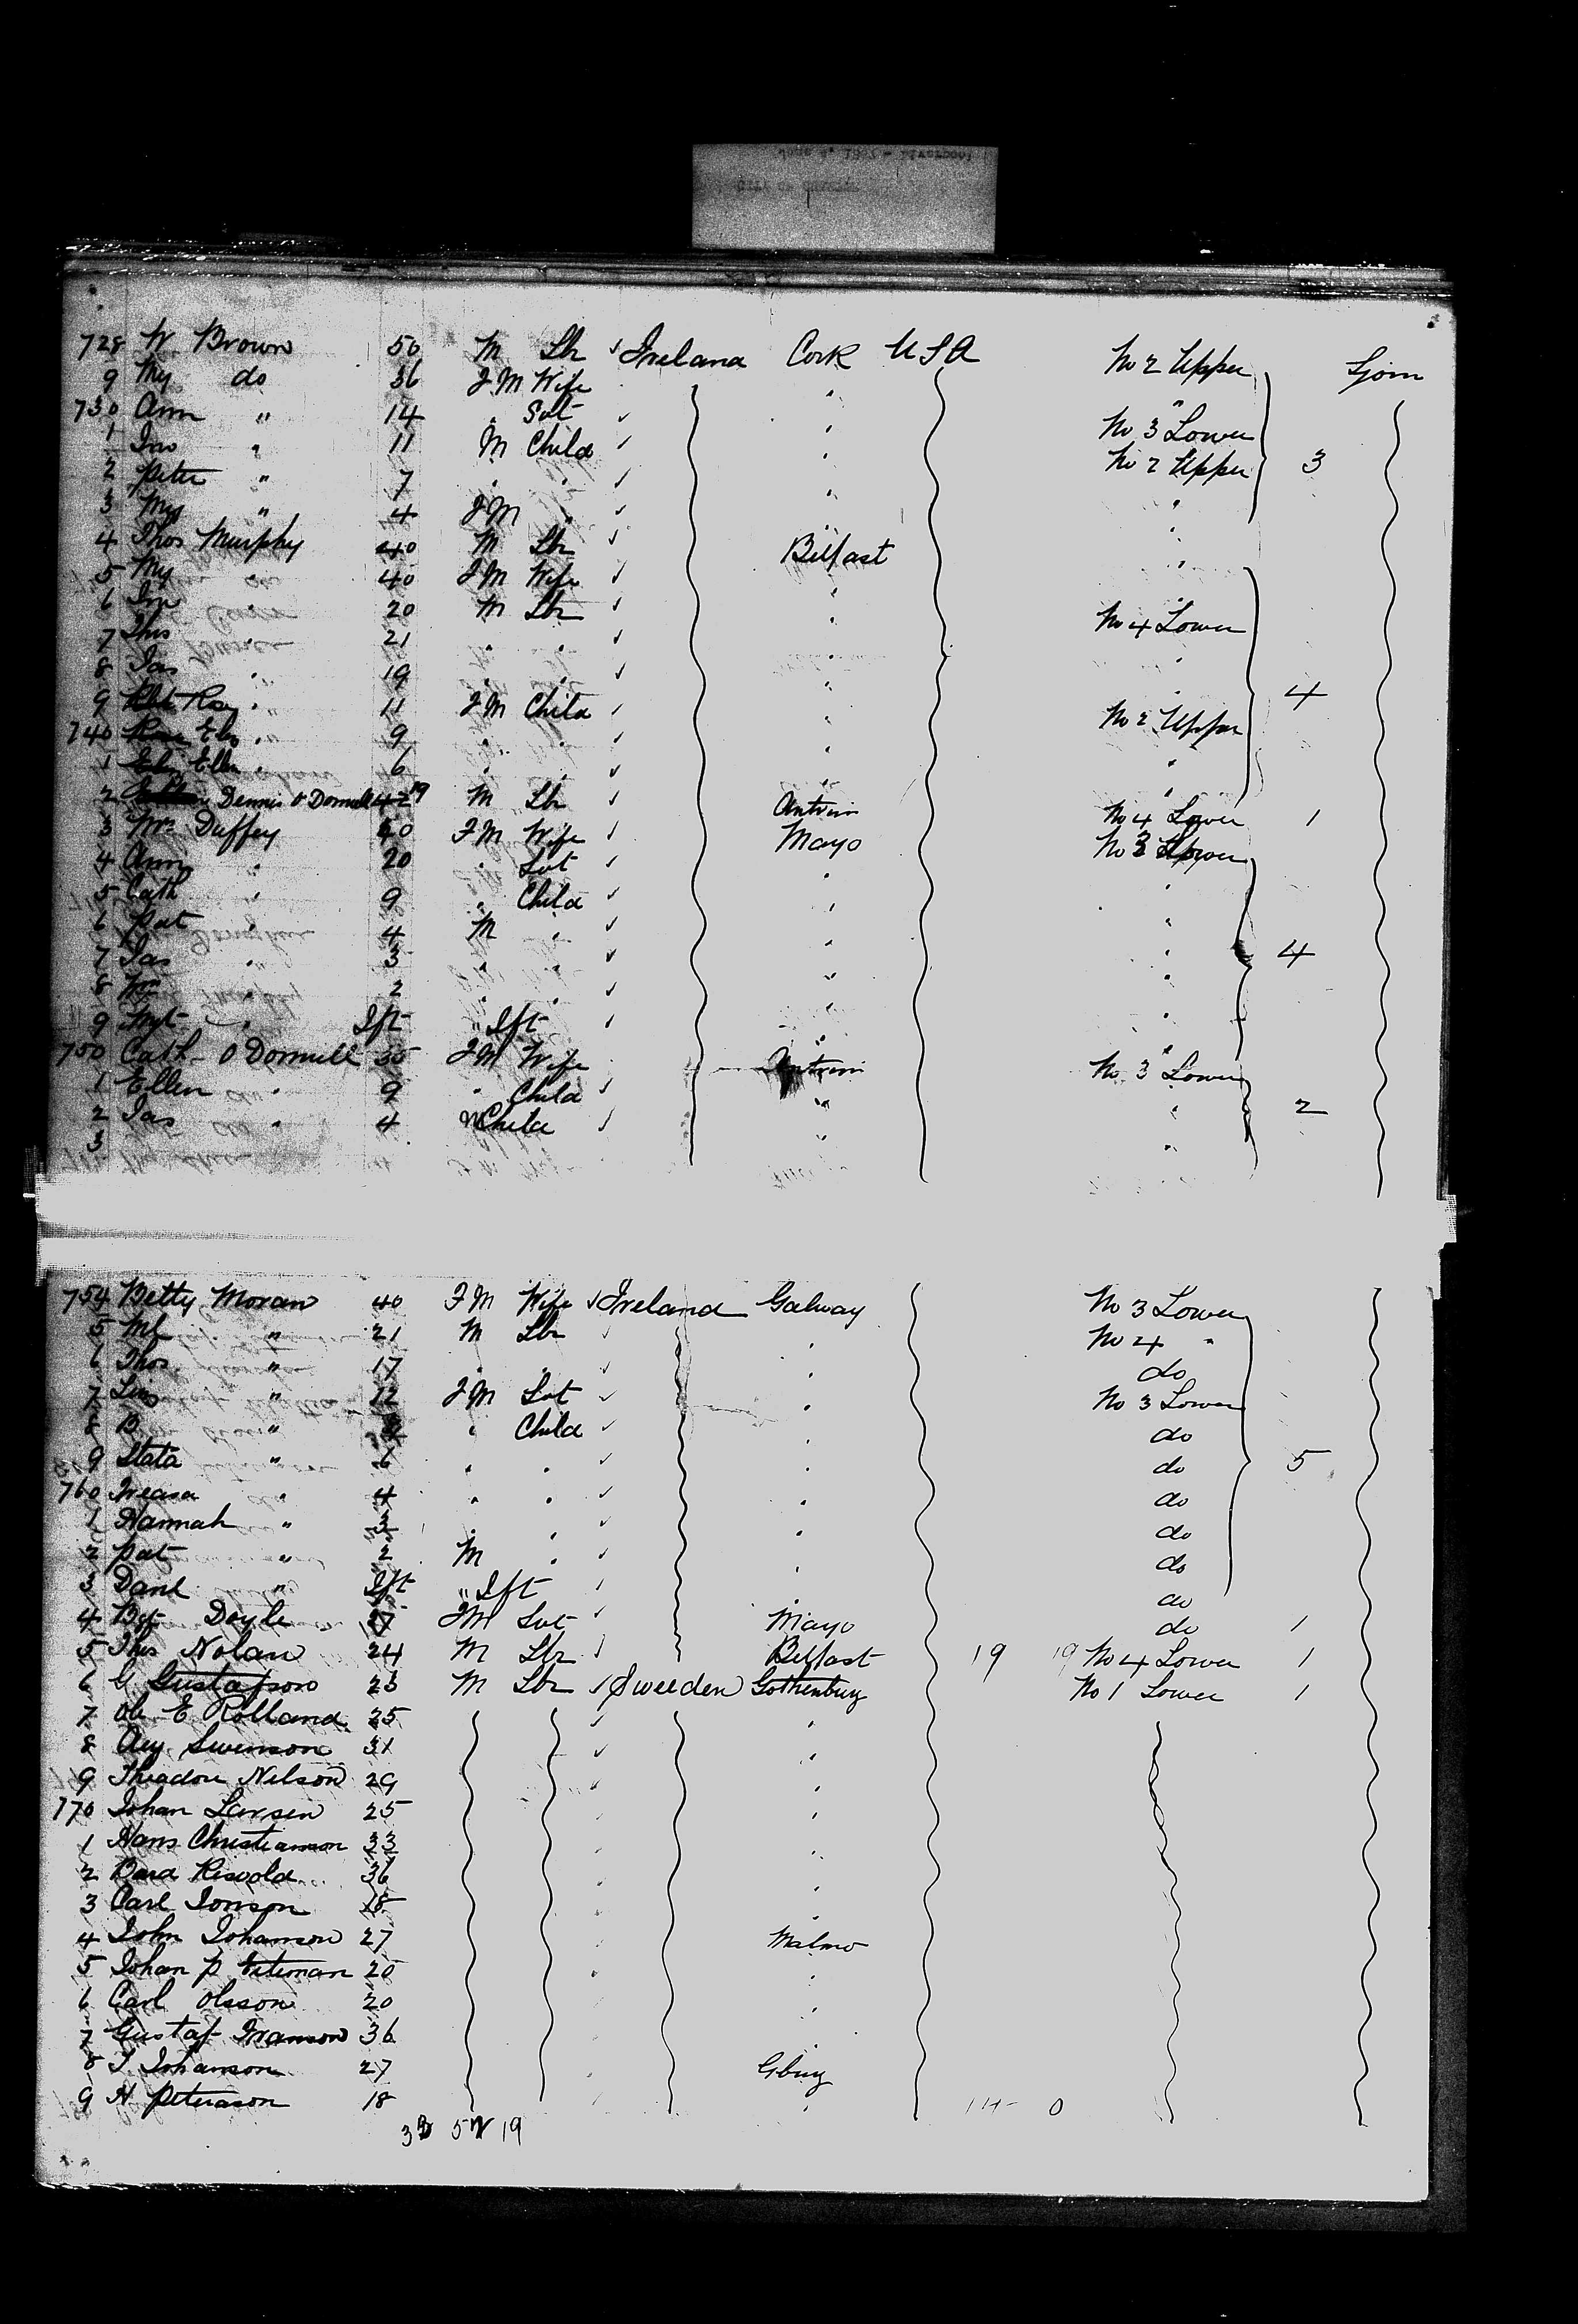 728 W Brown 50 M Lbr Ireland Cork USA No 2 Upper Sjorn
9 My do 36 FM Wife "
730 Ann " 14 " Svt " No 3 Lower
1 Jno " 11 M Child " No 2 Upper 3
2 Peter " 7 " " " "
3 My " 4 FM " " "
4 Thos Murphy 40 M Lbr Belfast "
5 My " 40 FM Wife " "
6 Jno " 20 M Lbr " No 4 Lower
7 Thos " 21 " " " "
8 Jas " 19 " " " " 4
9 Rose " 11 FM Child " No 2 Upper
740 Eliz " 9 " " " "
1 Ellen " 6 " " " "
2 Dennis O Donnell 19 M Lbr Antrim No 4 Lower 1
3 Mrs Duffey 40 FM Wife Mayo No 3 Lower
4 Ann " 20 " Svt " "
5 Cath " 9 " Child " "
6 Pat " 4 M " " "
7 Jas " 3 " " " " 4
8 Wm " 2 " " " "
9 Myt " Ift " Ift " "
750 Cath O Donnell 35 FM Wife Antrim No 3 Lower
1 Ellen " 9 " Child " " 2
2 Jas " 4 M Child " "
3
754 Betty Moran 40 FM Wife Ireland Galway No 3 Lower
5 Ml " 21 M Lbr " No 4 "
6 Thos " 17 " " " do
7 " 12 FM Svt " No 3 Lower
8 B " " Child " do
9 Stata " 6 " " " do 5
760 Treasa " 4 " " " do
1 Hannah " 3 " " " do
2 Pat " 2 M " " do
3 Danl " Ift " Ift do
4 Bgt Doyle 17 FM Svt Mayo do 1
5 Thos Nolan 24 M Lbr Belfast 19 19 No 4 Lower 1
6 G Gustafson 23 M Lbr Sweeden Gothenburg No 1 Lower 1
7 Ole E Rolland 25 "
8 Aug Swenson 31 "
9 Theadore Nelson 29 "
770 Johan Larsen 25 "
1 Hans Christianson 33 "
2 Risvold 36 "
3 Carl Jonson 18 "
4 John Johanson 27 Malmo
5 Johan P 20 "
6 Carl Olsson 20 "
7 Gustaf Ivanson 36 "
8 J. Johanson 27 Gburg
9 H Peterson 18 " 0
19